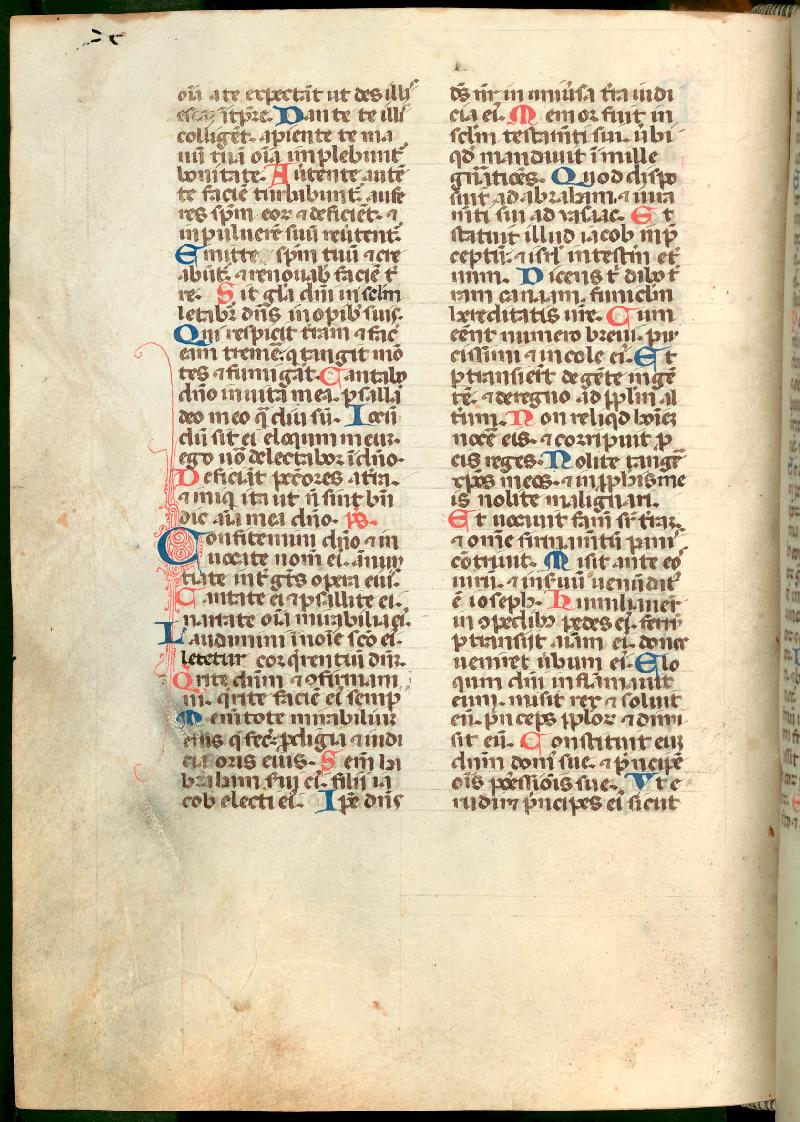 oīa a te expectāt ut des illis
escā ī tp̄re. Dante te illis
colligēt. apiente te ma
nū tuā oīa implebunt᷑
bonitate. Auertente autē
te faciē turbabunt᷑. aufe
res sp̄m eoꝝ ⁊ deficiēt. ⁊
in puluerē suū reuertent᷑.
Emitte sp̄m tuū ⁊ cre
abunt᷑. ⁊ renouab faciē t̄
re. Sit gl̄a dn̄i in sclm̄
letabit᷑ dn̄s in opib suis.
Qui respicit terram ⁊ fac
eam tremē͛. q̄ tangit mō
tes ⁊ fumigāt. Cantabo
dn̄o in uita mea. psallā
deo meo q̄ diu sū. Iocū
dū sit ei eloqium meuꝫ.
ego uō delectabor ī dn̄o.
Deficiāt pec̄ores a t̄ra.
⁊ iniq̄ ita ut n̄ sint bn̄
dic aīa mea dn̄o. ps.
Confitemini dn̄o ⁊ in
uocate nom̄ ei᷒. annū
tiate int̄ gētes opera eius.
Cantate ei ⁊ psallite ei.
narrate oīa mirabilia ei᷒.
Laudamini ī noīe scō ei᷒.
letetur cor q̄rentiū dn̄m.
Querite dn̄m ⁊ ꝯfirmam
ni. q̄rite faciē ei᷒ semp̄
Mementote mirabiliuꝫ
eius q̄ fec̄. prodigia ⁊ iudi
cia oris eius. Semen ha
braham serui ei᷒. filii ia
cob electi ei᷒. Ipē dn̄s
ds̄ nr̄ in uniūsa t̄ra iudi
cia ei᷒. Memor fuit in
sclm̄ testam̄ti sui. ūbi
qd̄ mandauit ī mille
gn̄atiōes. Quod dispo
suit ad abraham. ⁊ iura
m̄ti sui ad ysaac. Et
statuit illud iacob in p̄
ceptū. ⁊ isrl̄ in testm̄ et᷑
num. Dicens t̄ dabo t᷑
ram canaam. funiclm̄
hereditatis ur̄e. Cum
eēnt numero breui. pau
cissimi ⁊ incole ei᷒. Et
ptransierūt de gēte in gē
tē. ⁊ de regno ad pplm̄ al
t᷑um. Non reliqd hoīeꝫ
nocē͛ eis. ⁊ corripuit p
eis reges. Nolite tangē͛
xp̄os meos. ⁊ in pphis me
is nolite malignari.
Et uocauit famē sr̄ t̄raꝫ.
⁊ omē firmam̄tū panis
cōtriuit. Misit ante eos
uirū. ⁊ in seruū uenūdat᷒
ē ioseph. Humiliauer̄t
in ꝯpedibꝫ pedes ei᷒. ferrū
ptransiit aīam ei᷒. donec
ueniret ūbum ei᷒. Elo
qum dn̄i inflamauit
eum. misit rex ⁊ soluit
eū. p̄nceps pploꝝ ⁊ dimi
sit eū. Constituit euꝫ
dn̄um dom᷒ sue. ⁊ p̄ncipē
ois possessiōis sue. Vt e
rudiret p̄ncipes ei᷒ sicut